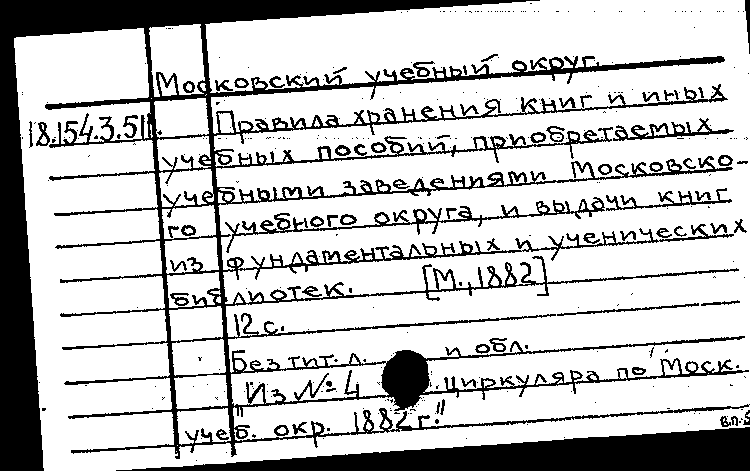 Московский учебный округ.
18.154.3.511. Правила хранения книг и иных
учебных пособий, приобретаемых
учебными заведениями Московско-
го учебного округа, и выдачи книг
из фундаментальных и ученических
библиотек. [М., 1882]
12 с.
Без тит. л. и обл.
"Из № 4 циркуляра по Моск.
учеб. окр. 1882 г."